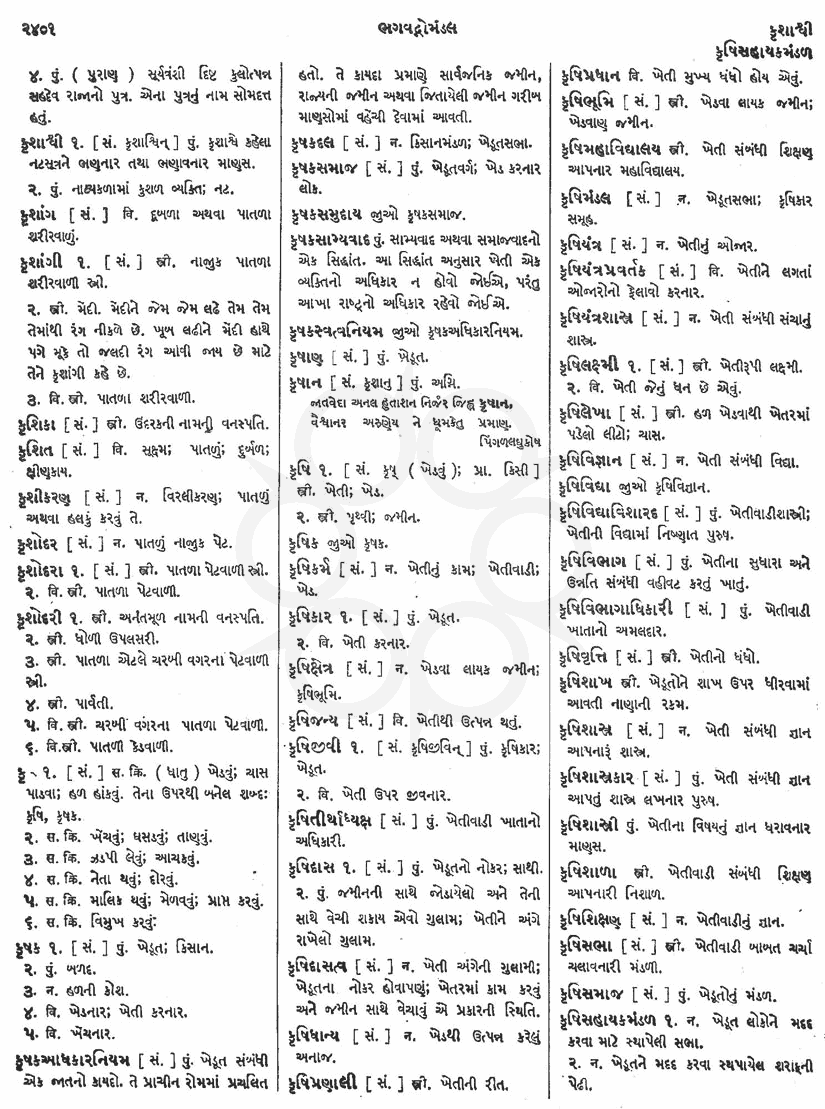 ૨૪૦૧
ભગવદ્ગોમંડલ
કૃશાશ્વી
કૃષિસહાયકમંડળ
૪. પું. ( પુરાણ ) સૂર્યવંશી દિષ્ટ કુલોત્પન્ન
સહદેવ રાજાનો પુત્ર. એના પુત્રનું નામ સોમદત્ત
હતું.
કૃશાશ્વી ૧. [ સં. કૃશાશ્વિન્ ] પું. કૃશાશ્વે કહેલા
નટસૂત્રને ભણનાર તથા ભણાવનાર માણસ.
૨. પું. નાટ્યકળામાં કુશળ વ્યક્તિ; નટ.
કૃશાંગ [ સં. ] વિ. દૂબળા અથવા પાતળા
શરીરવાળું.
કૃશાંગી ૧. [ સં. ] સ્ત્રી. નાજુક પાતળા
શરીરવાળી સ્ત્રી.
૨. સ્ત્રી. મેંદી. મેંદીને જેમ જેમ લઢે તેમ તેમ
તેમાંથી રંગ નીકળે છે. ખૂબ લઢીને મેંદી હાથે
પગે મૂકે તો જલદી રંગ આવી જાય છે માટે
તેને કૃશાંગી કહે છે.
૩. વિ. સ્ત્રી. પાતળા શરીરવાળી.
કૃશિકા [ સં. ] સ્ત્રી. ઉંદરકની નામની વનસ્પતિ.
કૃશિત [ સં. ] વિ. સૂક્ષ્મ; પાતળું; દુર્બળ;
ક્ષીણકાય.
કૃશીકરણ [ સં. ] ન. વિરલીકરણ; પાતળું
અથવા હલકું કરવું તે.
કૃશોદર [ સં. ] ન. પાતળું નાજુક પેટ.
કૃશોદરા ૧. [ સં. ] સ્ત્રી. પાતળા પેટવાળી સ્ત્રી.
૨. વિ. સ્ત્રી. પાતળા પેટવાળી.
કૃશોદરી ૧. સ્ત્રી. અનંતમૂળ નામની વનસ્પતિ.
૨. સ્ત્રી. ધોળી ઉપલસરી.
૩. સ્ત્રી. પાતળા એટલે ચરબી વગરના પેટવાળી
સ્ત્રી.
૪. સ્ત્રી. પાર્વતી.
૫. વિ. સ્ત્રી. ચરબી વગરના પાતળા પેટવાળી.
૬. વિ. સ્ત્રી. પાતળી કેડવાળી.
૧. [ સં. ] સ. ક્રિ. ( ધાતુ ) ખેડવું; ચાસ
પાડવા; હળ હાંકવું. તેના ઉપરથી બનેલ શબ્દ:
કૃષિ, કૃષક.
૨. સ. ક્રિ. ખેંચવું; ઘસડવું; તાણવું.
૩. સ. ક્રિ. ઝડપી લેવું; આચકવું.
૪. સ. ક્રિ. નેતા થવું; દોરવું.
૫. સ. ક્રિ. માલિક થવું; મેળવવું; પ્રાપ્ત કરવું.
૬. સ. ક્રિ. વિમુખ કરવું.
કૃષક ૧. [ સં. ] પું. ખેડૂત; કિસાન.
૨. પું. બળદ.
૩. ન. હળની કોશ.
૪. વિ. ખેડનાર; ખેતી કરનાર.
૫. વિ. ખેંચનાર.
કૃષકઅધિકારનિયમ [ સં. ] પું. ખેડૂત સંબંધી
એક જાતનો કાયદો. તે પ્રાચીન રોમમાં પ્રચલિત
હતો. તે કાયદા પ્રમાણે સાર્વજનિક જમીન,
રાજ્યની જમીન અથવા જિતાયેલી જમીન ગરીબ
માણસોમાં વહેંચી દેવામાં આવતી.
કૃષકદલ [ સં. ] ન. કિસાનમંડળ; ખેડૂતસભા.
કૃષકસમાજ [ સં. ] પું. ખેડૂતવર્ગ; ખેડ કરનાર
લોક.
કૃષકસમુદાય જુઓ કૃષકસમાજ.
કૃષકસામ્યવાદ પું. સામ્યવાદ અથવા સમાજવાદનો
એક સિદ્ધાંત. આ સિદ્ધાંત અનુસાર ખેતી એક
વ્યક્તિનો અધિકાર ન હોવો જોઈએ, પરંતુ
આખા રાષ્ટ્રનો અધિકાર રહેવો જોઈએ.
કૃષકસ્વત્વનિયમ જુઓ કૃષકઅધિકારનિયમ.
કૃષાણ [ સં. ] પું. ખેડૂત.
કૃષાન [ સં. કૃશાનુ ] પું. અગ્નિ.
જાતવેદા અનલ હુતાશન નિર્જર જિહ્વ કૃષાન,
વૈશ્વાનર અરુણેય ને ધૂમકેતુ પ્રમાણ.
પિંગળલઘુકોષ
કૃષિ ૧. [ સં. કૃષ્ ( ખેડવું ); પ્રા. કિસી ]
સ્ત્રી. ખેતી; ખેડ.
૨. સ્ત્રી. પૃથ્વી; જમીન.
કૃષિક જુઓ કૃષક.
કૃષિકર્મ [ સં. ] ન. ખેતીનું કામ; ખેતીવાડી;
ખેડ.
કૃષિકાર ૧. [ સં. ] પું. ખેડૂત.
૨. વિ. ખેતી કરનાર.
કૃષિક્ષેત્ર [ સં. ] ન. ખેડવા લાયક જમીન;
કૃષિભૂમિ.
કૃષિજન્ય [ સં. ] વિ. ખેતીથી ઉત્પન્ન થતું.
કૃષિજીવી ૧. [ સં. કૃષિજીવિન્ ] પું. કૃષિકાર;
ખેડૂત.
૨. વિ. ખેતી ઉપર જીવનાર.
કૃષિતીર્થાધ્યક્ષ [ સં. ] પું. ખેતીવાડી ખાતાનો
અધિકારી.
કૃષિદાસ ૧. [ સં. ] પું. ખેડૂતનો નોકર; સાથી.
૨. પું. જમીનની સાથે જોડાયેલો અને તેની
સાથે વેચી શકાય એવો ગુલામ; ખેતીને અંગે
રાખેલો ગુલામ.
કૃષિદાસત્વ [ સં. ] ન. ખેતી અંગેની ગુલામી;
ખેડૂતના નોકર હોવાપણું; ખેતરમાં કામ કરવું
અને જમીન સાથે વેચાવું એ પ્રકારની સ્થિતિ.
કૃષિધાન્ય [ સં. ] ન. ખેડથી ઉત્પન્ન કરેલું
અનાજ.
કૃષિપ્રણાલી [ સં. ] સ્ત્રી. ખેતીની રીત.
કૃષિપ્રધાન વિ. ખેતી મુખ્ય ધંધો હોય એવું.
કૃષિભૂમિ [ સં. ] સ્ત્રી. ખેડવા લાયક જમીન;
ખેડવાણ જમીન.
કૃષિમહાવિદ્યાલય સ્ત્રી. ખેતી સંબંધી શિક્ષણ
આપનાર મહાવિદ્યાલય.
કૃષિમંડલ [ સં. ] ન. ખેડૂતસભા; કૃષિકાર
સમૂહ.
કૃષિયંત્ર [ સં. ] ન. ખેતીનું ઓજાર.
કૃષિયંત્રપ્રવર્તક [ સં. ] વિ. ખેતીને લગતાં
ઓજારોનો ફેલાવો કરનાર.
કૃષિયંત્રશાસ્ત્ર [ સં. ] ન. ખેતી સંબંધી સંચાનું
શાસ્ત્ર.
કૃષિલક્ષ્મી ૧. [ સં. ] સ્ત્રી. ખેતીરૂપી લક્ષ્મી.
૨. વિ. ખેતી જેનું ધન છે એવું.
કૃષિલેખા [ સં. ] સ્ત્રી. હળ ખેડવાથી ખેતરમાં
પડેલો લીટો; ચાસ.
કૃષિવિજ્ઞાન [ સં. ] ન. ખેતી સંબંધી વિદ્યા.
કૃષિવિદ્યા જુઓ કૃષિવિજ્ઞાન.
કૃષિવિદ્યાવિશારદ [ સં. ] પું. ખેતીવાડીશાસ્ત્રી;
ખેતીની વિદ્યામાં નિષ્ણાત પુરુષ.
કૃષિવિભાગ [ સં. ] પું. ખેતીના સુધારા અને
ઉન્નતિ સંબંધી વહીવટ કરતું ખાતું.
કૃષિવિભાગાધિકારી [ સં. ] પું. ખેતીવાડી
ખાતાનો અમલદાર.
કૃષિવૃત્તિ [ સં. ] સ્ત્રી. ખેતીનો ધંધો.
કૃષિશાખ સ્ત્રી. ખેડૂતોને શાખ ઉપર ધીરવામાં
આવતી નાણાની રકમ.
કૃષિશાસ્ત્ર [ સં. ] ન. ખેતી સંબંધી જ્ઞાન
આપનારું શાસ્ત્ર.
કૃષિશાસ્ત્રકાર [ સં. ] પું. ખેતી સંબંધી જ્ઞાન
આપતું શાસ્ત્ર લખનાર પુરુષ.
કૃષિશાસ્ત્રી પું. ખેતીના વિષયનું જ્ઞાન ધરાવનાર
માણસ.
કૃષિશાળા સ્ત્રી. ખેતીવાડી સંબંધી શિક્ષણ
આપનારી નિશાળ.
કૃષિશિક્ષણ [ સં. ] ન. ખેતીવાડીનું જ્ઞાન.
કૃષિસભા [ સં. ] સ્ત્રી. ખેતીવાડી બાબત ચર્ચા
ચલાવનારી મંડળી.
કૃષિસમાજ [ સં. ] પું. ખેડૂતોનું મંડળ.
કૃષિસહાયકમંડળ ૧. ન. ખેડૂત લોકોને મદદ
કરવા માટે સ્થાપેલી સભા.
૨. ન. ખેડૂતને મદદ કરવા સ્થપાયેલ શરાફની
પેઢી.